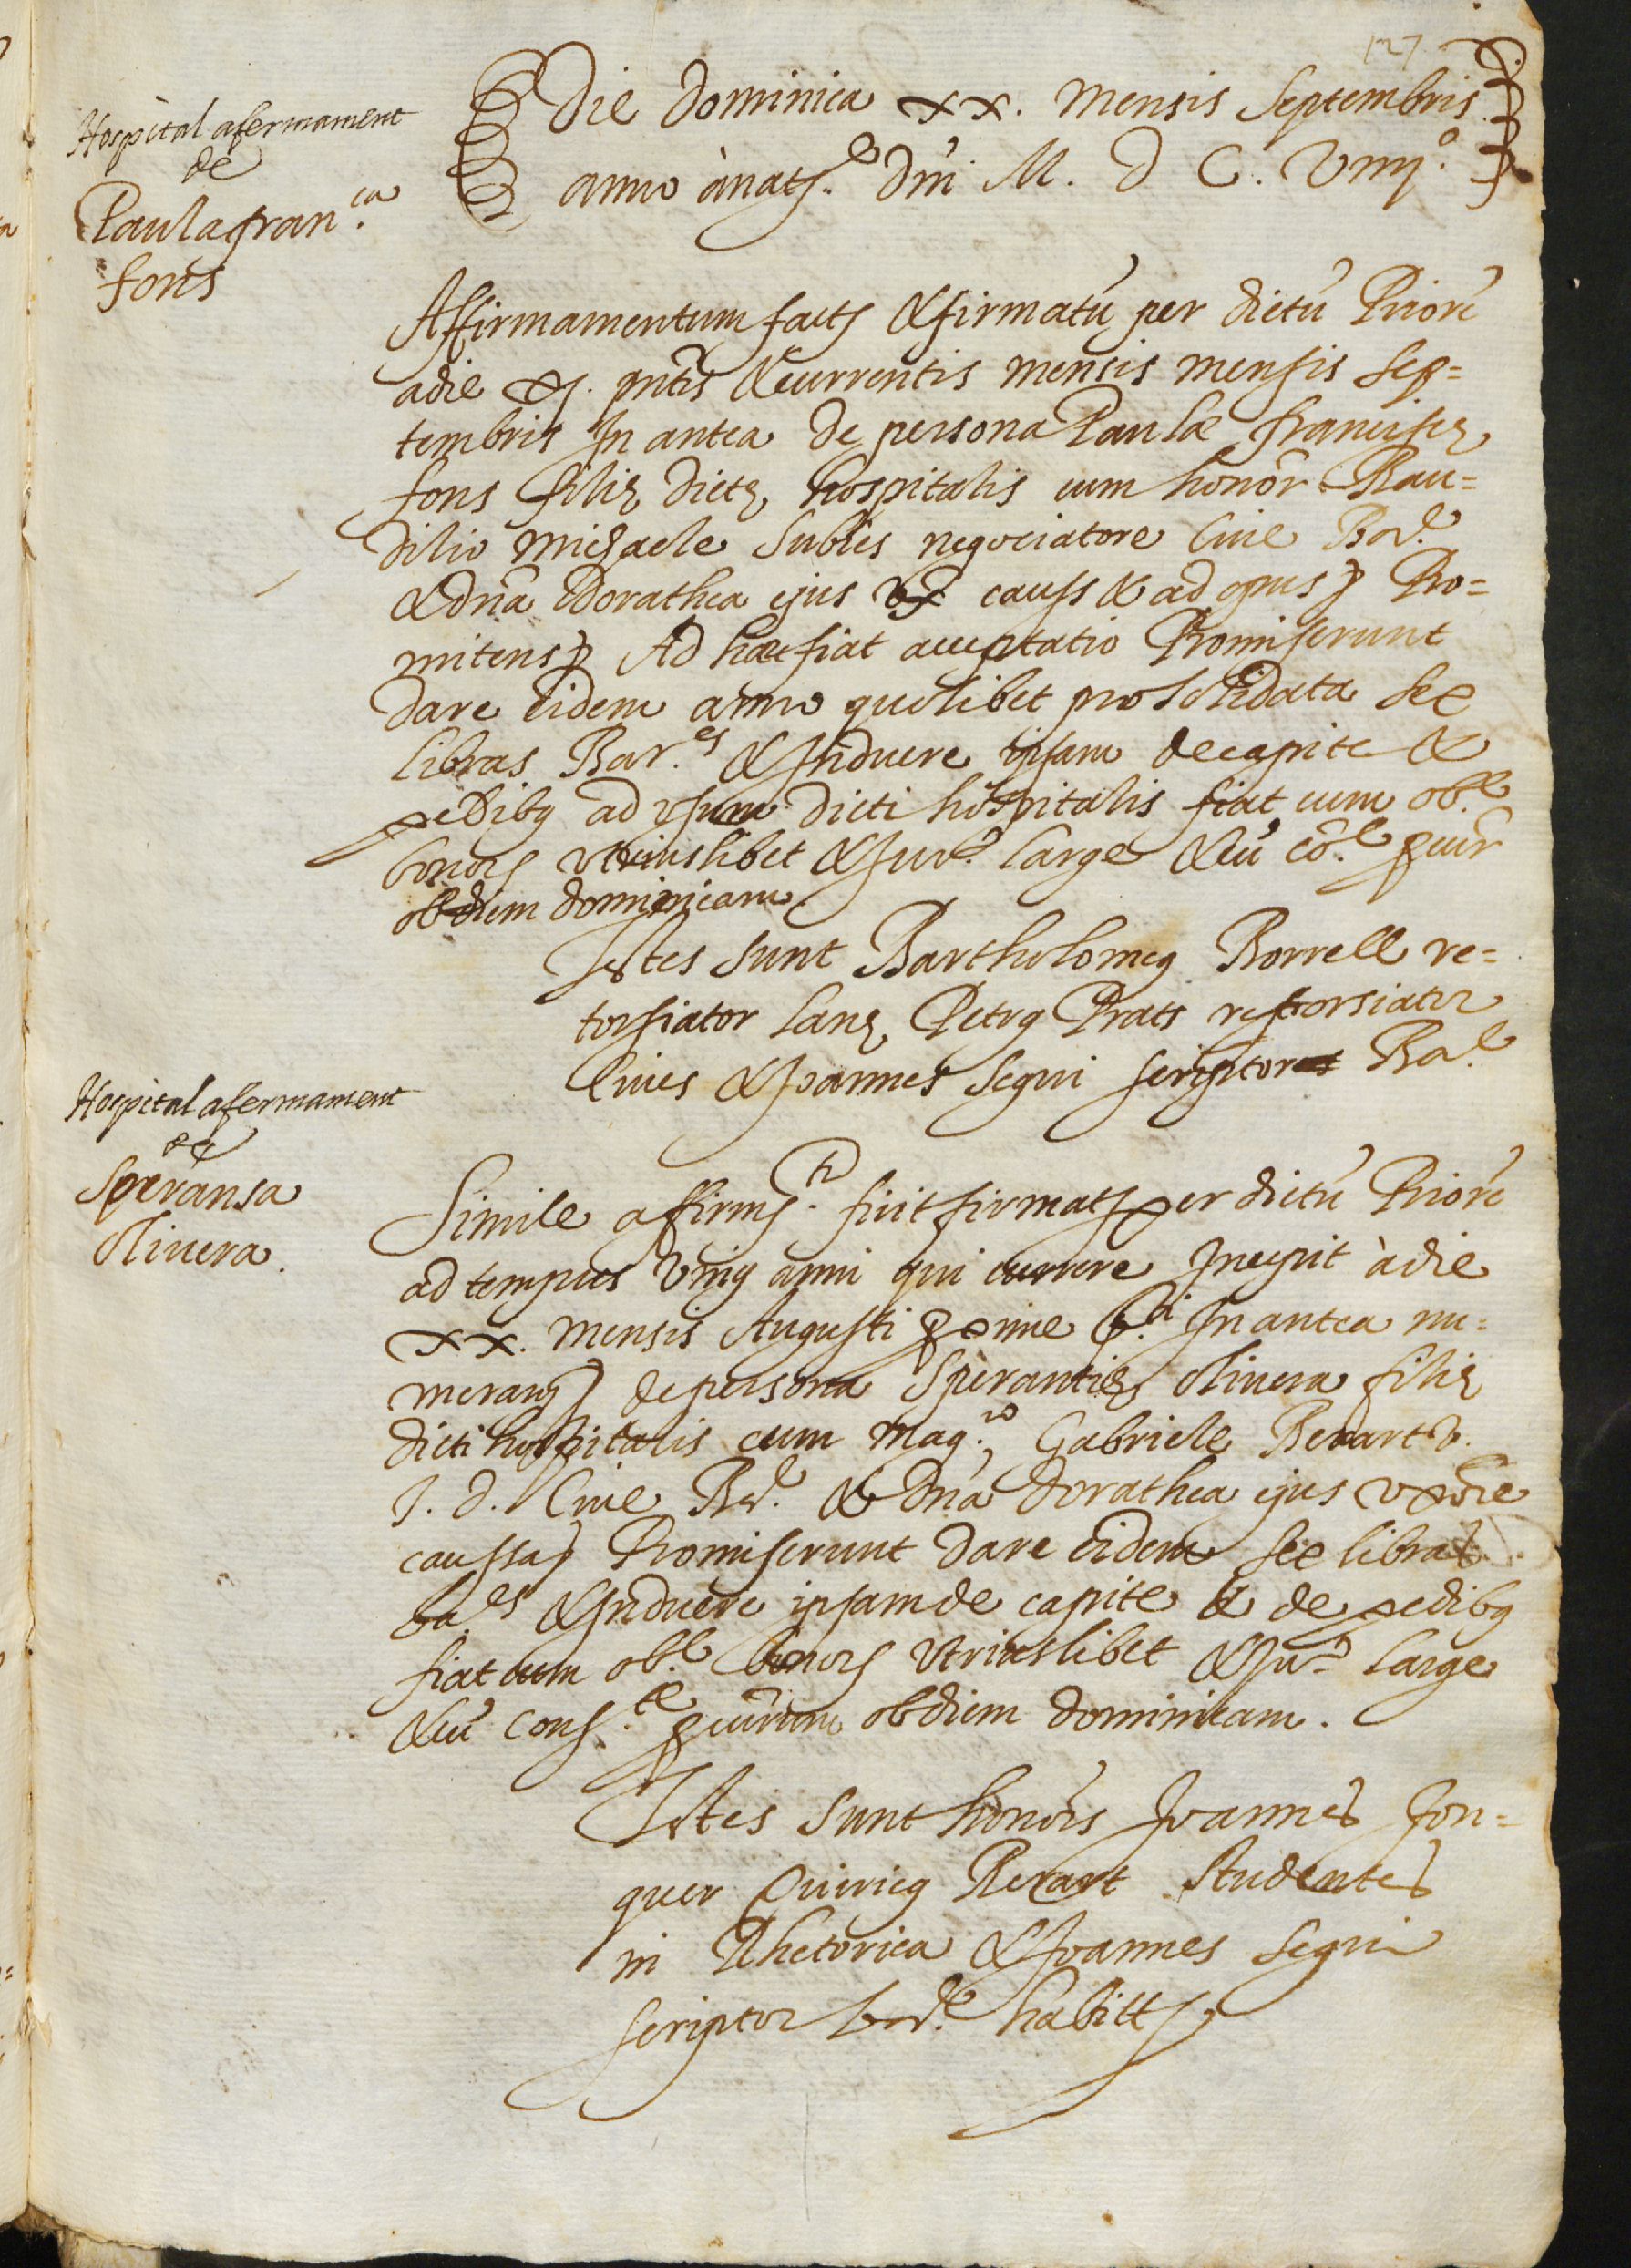 127
Die Dominica xx. Mensis Septembris
anno à nat.e Dni M. D C. Viiij.o
Hospital afermament
de
Paula fran.ca
fons
Affirmamentum fact &firmatū per dictū Priorē
a die pntis & currentis mensis mensis Sep=
tembris In antea de persona Paulæ franciscę
fons filię dictę hospitalis cum honor Bau=
dilio Michaele Subies negociatore Ciue Bar.e
& dna Dorathea ejus vx causs & ad opus Pro=
mitens Ad hæc fiat acceptatio Promiserunt
dare eidem anno quolibet pro solidata sex
libras Bar.es & Induere ipsam de capite &
pedibq ad vsum dicti hospitalis fiat cum ob.e
bonor vtriuslibet & Jur.o large & cū cō.e
ob diem dominicam
Testes sunt Bartholomeq Borrell re=
torsiator lanę Petrq Prats restorsiator
Ciues & Joannes Segui scriptor Bar.e
Hospital afermament
de
Speransa
Oliuera.
Simile affirm.t fuit firmat per dictū Priorē
ad tempus Vniq anni qui currere Incepit à die
xx. mensis Augusti In antea nu=
merans de persona Sperantię Oliuera filię
dicti hospitalis cum Mag.co Gabriele Berart V.
J. D. Ciue Bar.e & Dna Dorathea ejus vxore
caussa Promiserunt dare eidem sex libras
ba.es & Induere ipsam de capite & de pedibq
fiat cum ob.e bonor vtriuslibet & Ju.o large
& cū cons.e ob diem dominicam.
Testes sunt honors Joannes Jon=
quer Quiricq Berart Studentes
in Rhetorica & Joannes Segui
scriptor bar.e habitt